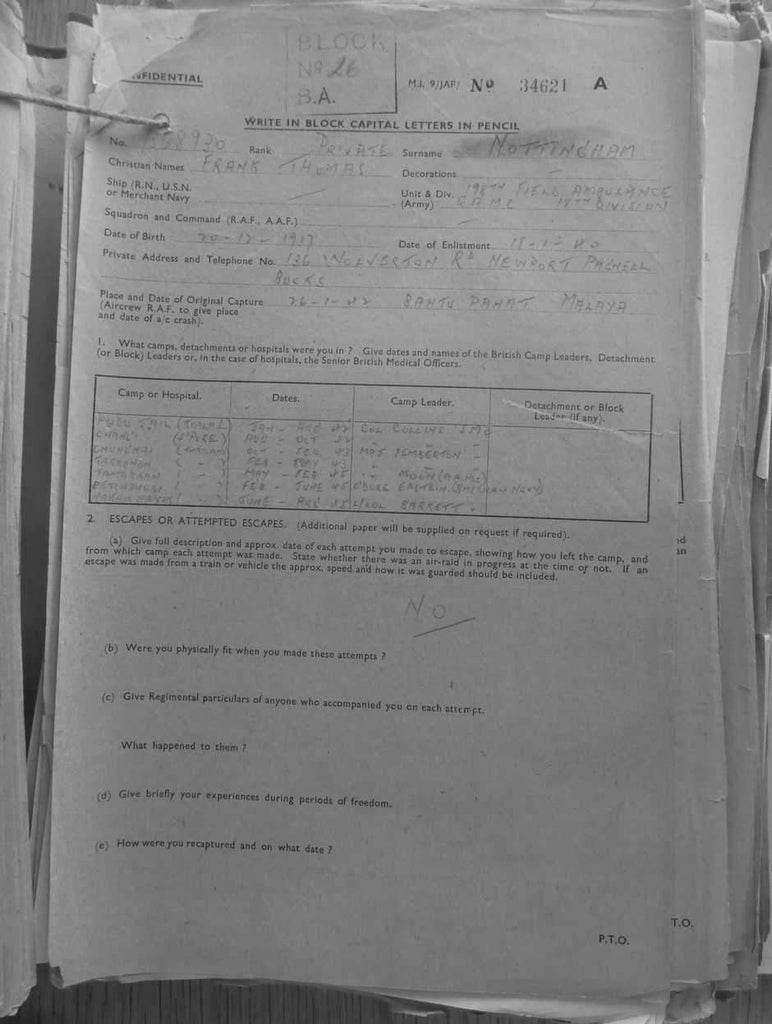 BLOCK
Nº 26
S.A.
NFIDENTIAL
M.I. 9/JAP/ Nº 34621 A
WRITE IN BLOCK CAPITAL LETTERS IN PENCIL
No. Rank PRIVATE Surname NOTTINGHAM
Christian Names FRANK THOMAS Decorations —
Ship (R.N., U.S.N.
or Merchant Navy
Unit & Div. 198TH FIELD AMBULANCE
(Army) R.A.M.C 18TH DIVISION
Squadron and Command (R.A.F., A.A.F.)
Date of Birth 20-12-1917 Date of Enlistment 18-1-40
Private Address and Telephone No. 126 WOLVERTON Rd NEWPORT PAGNELL
BUCKS
Place and Date of Original Capture 26-1-42 BANTU PAHAT MALAYA
(Aircrew R.A.F. to give place
and date of a/c crash).
1. What camps, detachments or hospitals were you in ? Give dates and names of the British Camp Leaders, Detachment
(or Block) Leaders or, in the case of hospitals, the Senior British Medical Officers.
Camp or Hospital. Dates. Camp Leader. Detachment or Block
Leader (if any).
PUDU JAIL JAN - AUG 42 COL COLLINS I.M.S
CHANGI (S'PORE) AUG - OCT 42
CHUNGKAI (SIAM) OCT - FEB 43 MAJ PEMBERTON
FEB - MAY 43
TAMARKAN MAY - FEB 45 MOON (A.A.M.C)
FEB - JUNE 45 EPSTEIN (AMERICAN NAVY)
JUNE - AUG 45 L/COL BARRETT
2. ESCAPES OR ATTEMPTED ESCAPES. (Additional paper will be supplied on request if required).
(a) Give full description and approx. date of each attempt you made to escape, showing how you left the camp, and
from which camp each attempt was made. State whether there was an air-raid in progress at the time or not. If an
escape was made from a train or vehicle the approx. speed and how it was guarded should be included.
NO
(b) Were you physically fit when you made these attempts ?
(c) Give Regimental particulars of anyone who accompanied you on each attempt.
What happened to them ?
(d) Give briefly your experiences during periods of freedom.
(e) How were you recaptured and on what date ?
T.O.
P.T.O.